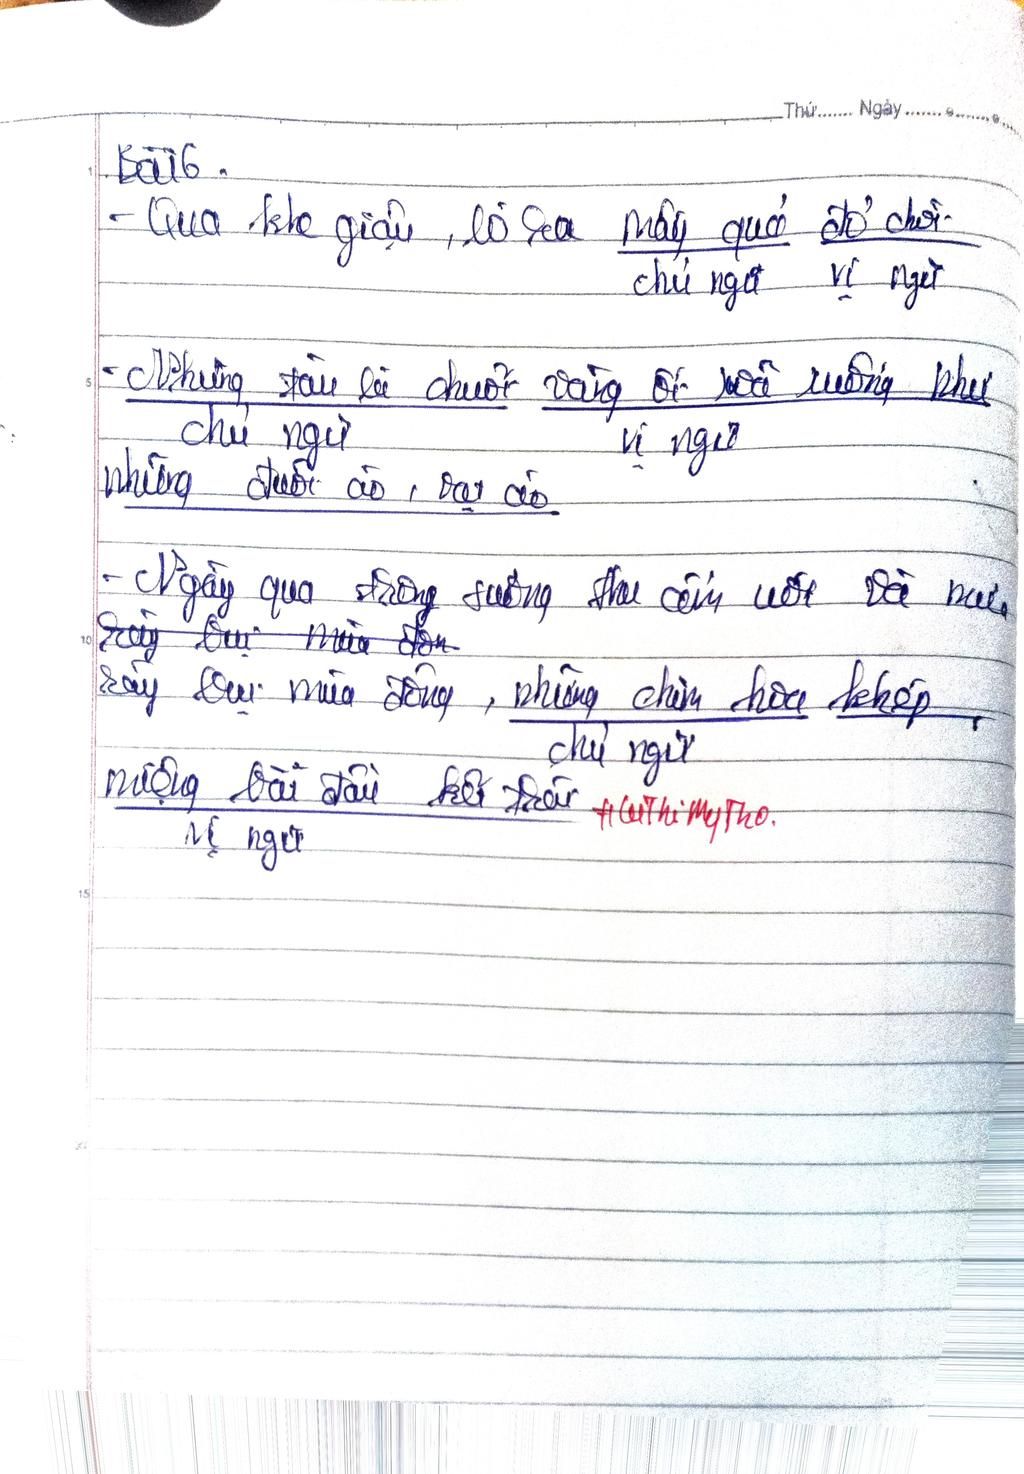 Thứ....... Ngày...............
Bài 6.
- Qua khe giậu, ló ra mấy quả đỏ chói.
chủ ngữ vị ngữ
- Những tàu lá chuối vàng ối xoã xuống như
chủ ngữ vị ngữ
những đuôi áo, vạt áo
- Ngày qua trong sương thu ẩm ướt và mưa
rây bụi mùa đôn
rây bụi mùa đông, những chùm hoa khép
chủ ngữ
miệng bắt đầu kết trái #LeThiMyTho.
vị ngữ